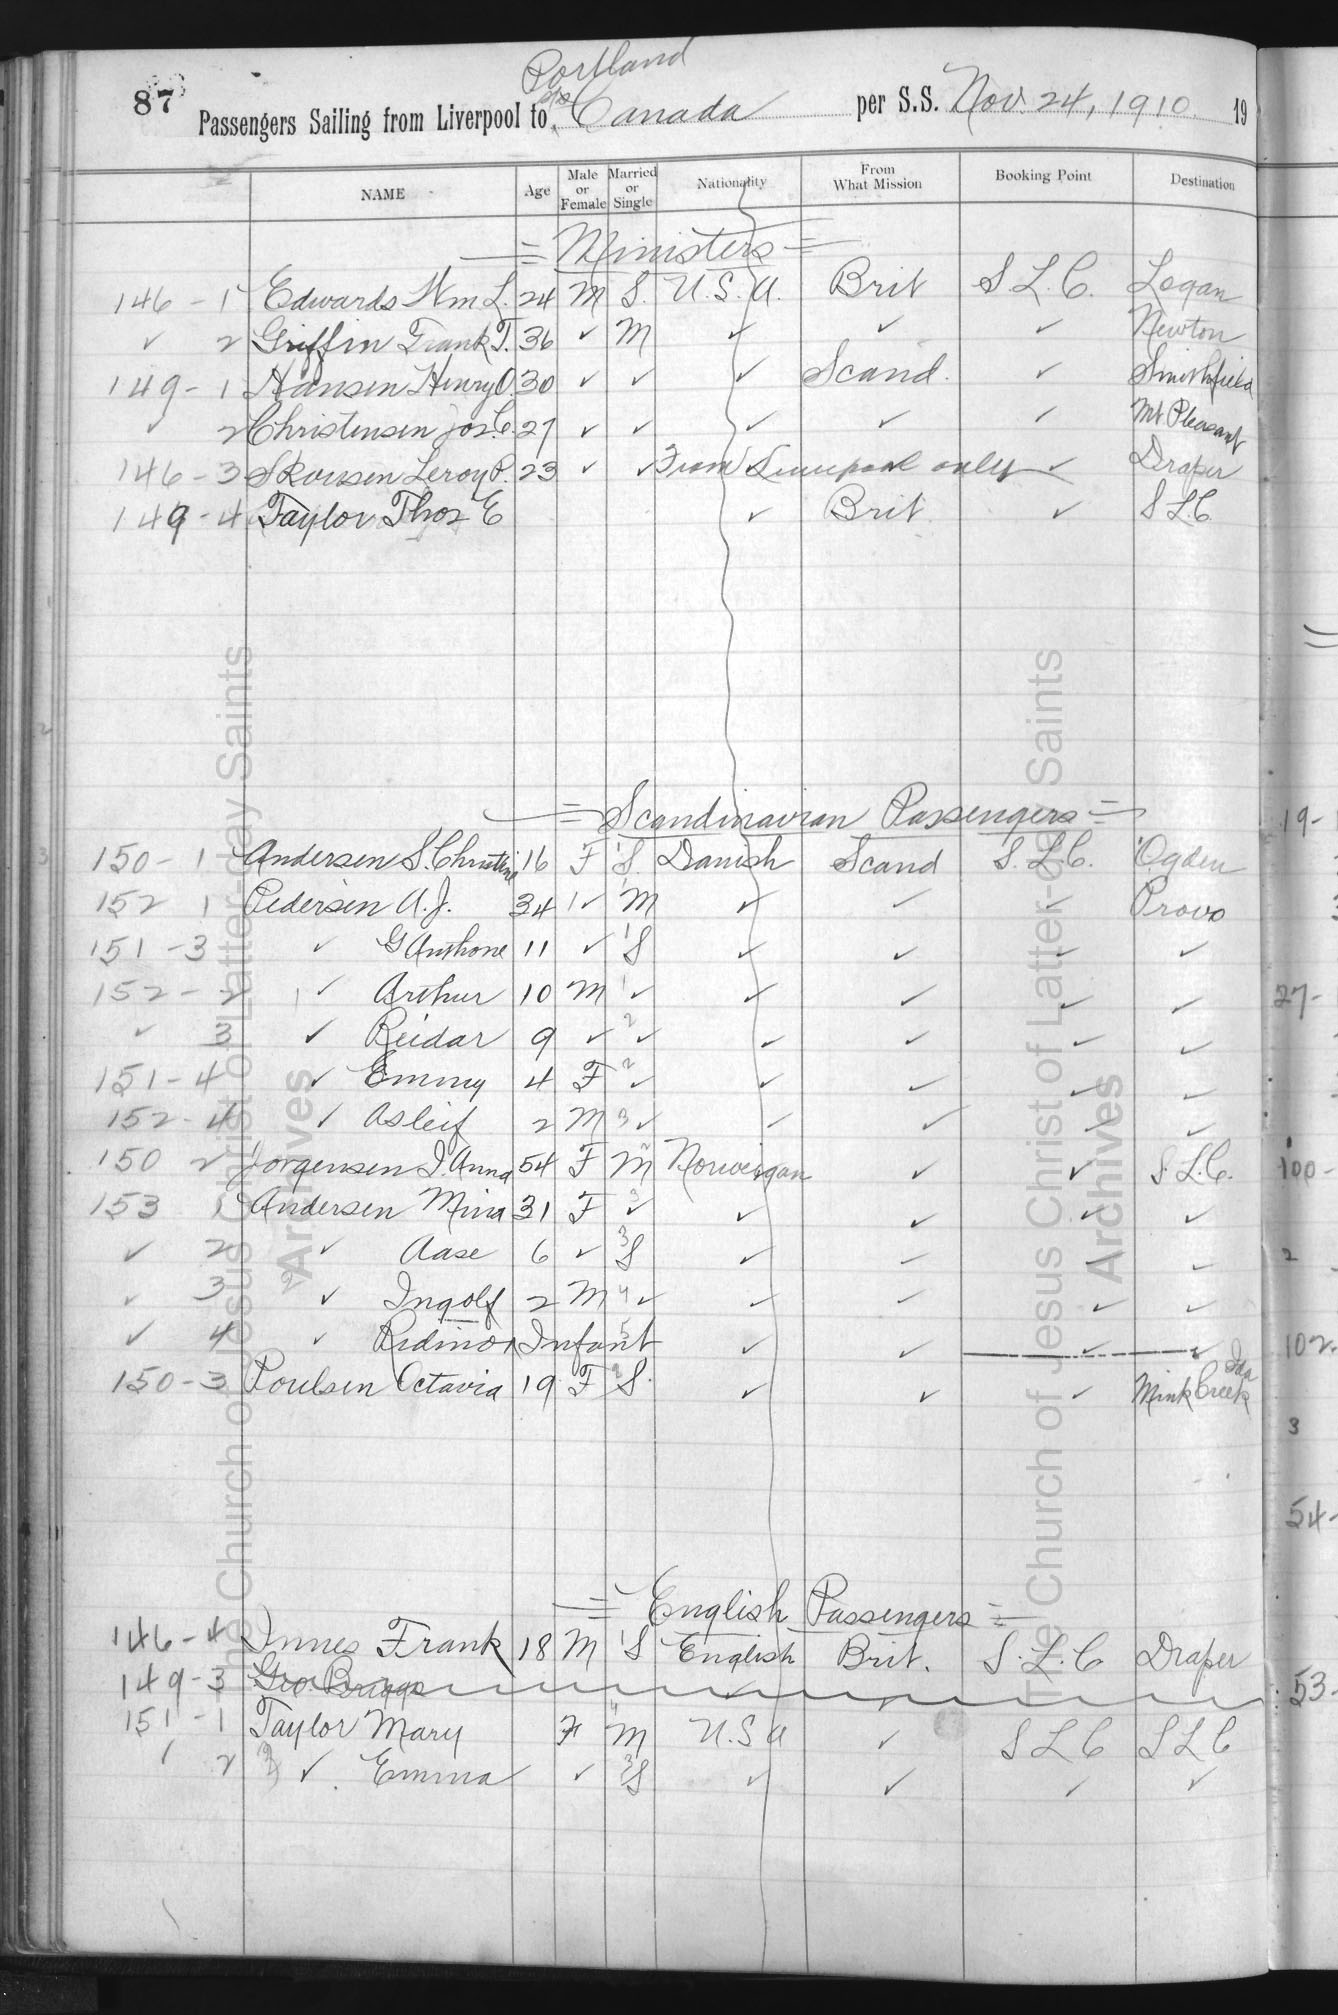 Portland
87
Passengers Sailing from Liverpool to S/S Canada per S.S. Nov. 24, 1910. 19
NAME Age Male or Female Married or Single Nationality From What Mission Booking Point Destination
= Ministers =
146 - 1 Edwards Wm L. 24 M S. U.S.A. Brit S.L.C. Logan
✓ 2 Griffin Frank T. 36 ✓ M ✓ ✓ ✓ Newton
149 - 1 Hansen Henry O. 30 ✓ ✓ ✓ Scand. ✓ Smithfield
✓ 2 Christensen Jos. C. 27 ✓ ✓ ✓ ✓ ✓ Mt Pleasant
146 - 3 Skousen Leroy P. 23 ✓ ✓ From Liverpool only ✓ Draper
149 - 4 Taylor Thos E ✓ Brit. ✓ S.L.C.
= Scandinavian Passengers =
150 - 1 Andersen S. Christine 16 F 1 S. Danish Scand S.L.C. Ogden
152 1 Pedersen A.J. 34 1 ✓ M ✓ ✓ ✓ Provo
151 - 3 ✓ G 11 ✓ 1 S ✓ ✓ ✓ ✓
152 - 2 1 ✓ Arthur 10 M 1 ✓ ✓ ✓ ✓ ✓
✓ 3 ✓ Reidar 9 ✓ 2 ✓ ✓ ✓ ✓ ✓
151 - 4 ✓ Emmy 4 F 2 ✓ ✓ ✓ ✓ ✓
152 - 4 ✓ Asleif 2 M 3 ✓ ✓ ✓ ✓ ✓
150 2 Jorgensen J. Anna 54 F 2 M Norweigan ✓ ✓ S.L.C.
153 1 Andersen Mina 31 F 3 ✓ ✓ ✓ ✓ ✓
✓ 2 ✓ Aase 6 ✓ 3 S ✓ ✓ ✓ ✓
✓ 3 2 ✓ Ingolf 2 M 4 ✓ ✓ ✓ ✓ ✓
✓ 4 ✓ Infant 5 ✓ ✓ ✓ ✓
150 - 3 Poulsen Octavia 19 F 2 S. ✓ ✓ ✓ Mink Creek Ida
= English Passengers =
146 - 4 Innes Frank 18 M 1 S English Brit. S.L.C Draper
149 - 3 Geo. Briggs
151 - 1 Taylor Mary F M U.S.A ✓ S L C S L C
✓ 2 ✓ Emma ✓ 3 S ✓ ✓ ✓ ✓
The Church of Jesus Christ of Latter-day Saints
Archives
The Church of Jesus Christ of Latter-day Saints
Archives
19-
27-
100-
2
102.
3
54-
53-